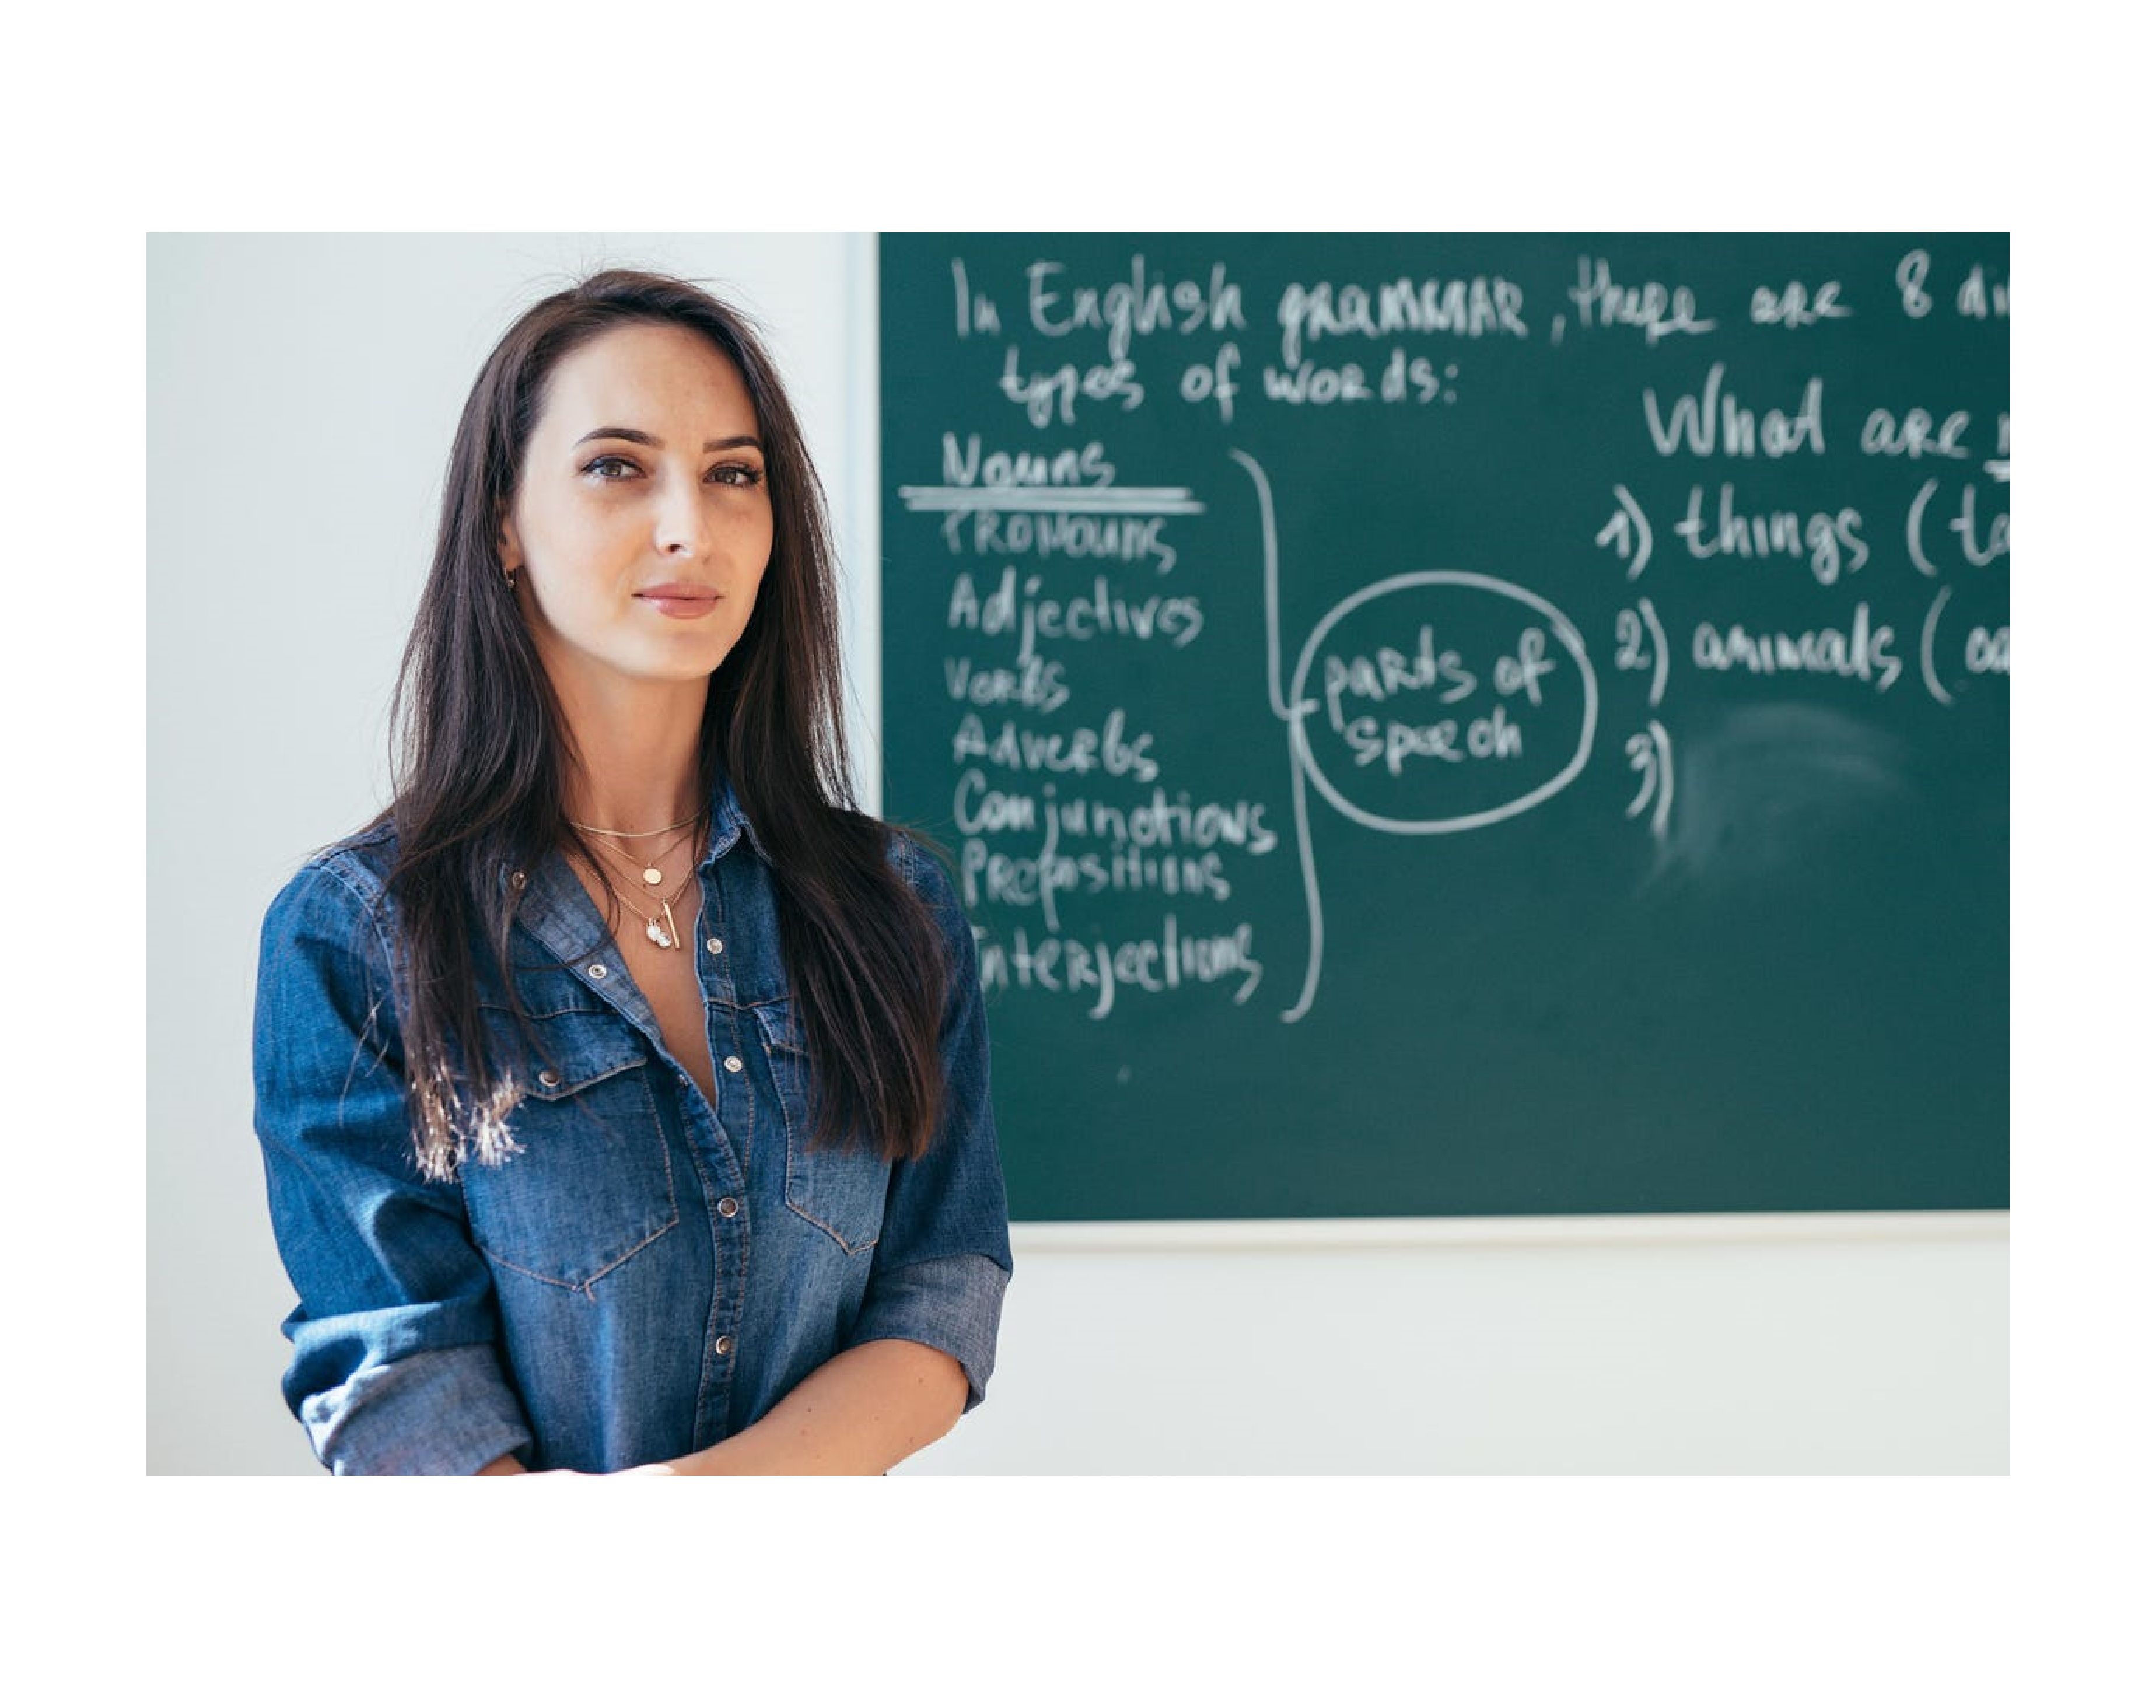 In English grammar, there are 8 di
types of words:
Nouns
Pronouns
Adjectives
Verbs
Adverbs
Conjunctions
Prepositions
Interjections
parts of
speech
What are
1) things (ta
2) animals (ca
3)